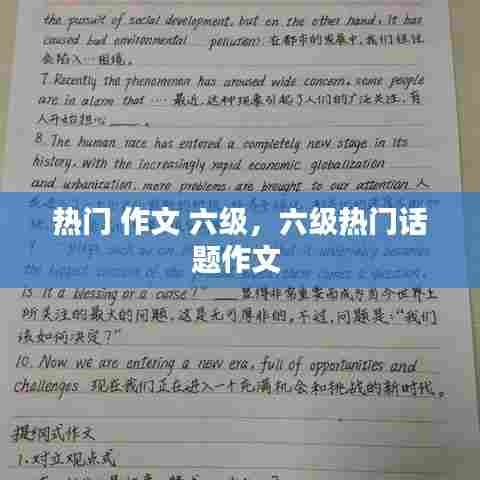 the pursuit of social development, but on the other hand, it has
caused bad environmental pollution: 在都市的发展中,我们往往
会陷入一困境。
7. Recently the phenomenon has aroused wide concern, some people
are in alarm that … 最近,这种现象引起了人们的广泛关注,有
人开始担心____。
8. The human race has entered a completely new stage in its
history, with the increasingly rapid economic globalization
and urbanization, more problems are brought to our attention 人
热门 作文 六级，六级热门话
题作文
9. plays such an
the biggest concern of the present there comes a question,
is it a blessing or a curse?" ____显得非常重要而成为当今世界上
所关注的最大的问题,这是无可厚非的。不过,问题是:"我们
该如何决定?"
10. Now we are entering a new era, full of opportunities and
challenges 现在我们正在进入一个充满机会和挑战的新时代。
提纲式作文
1. 对立观点式